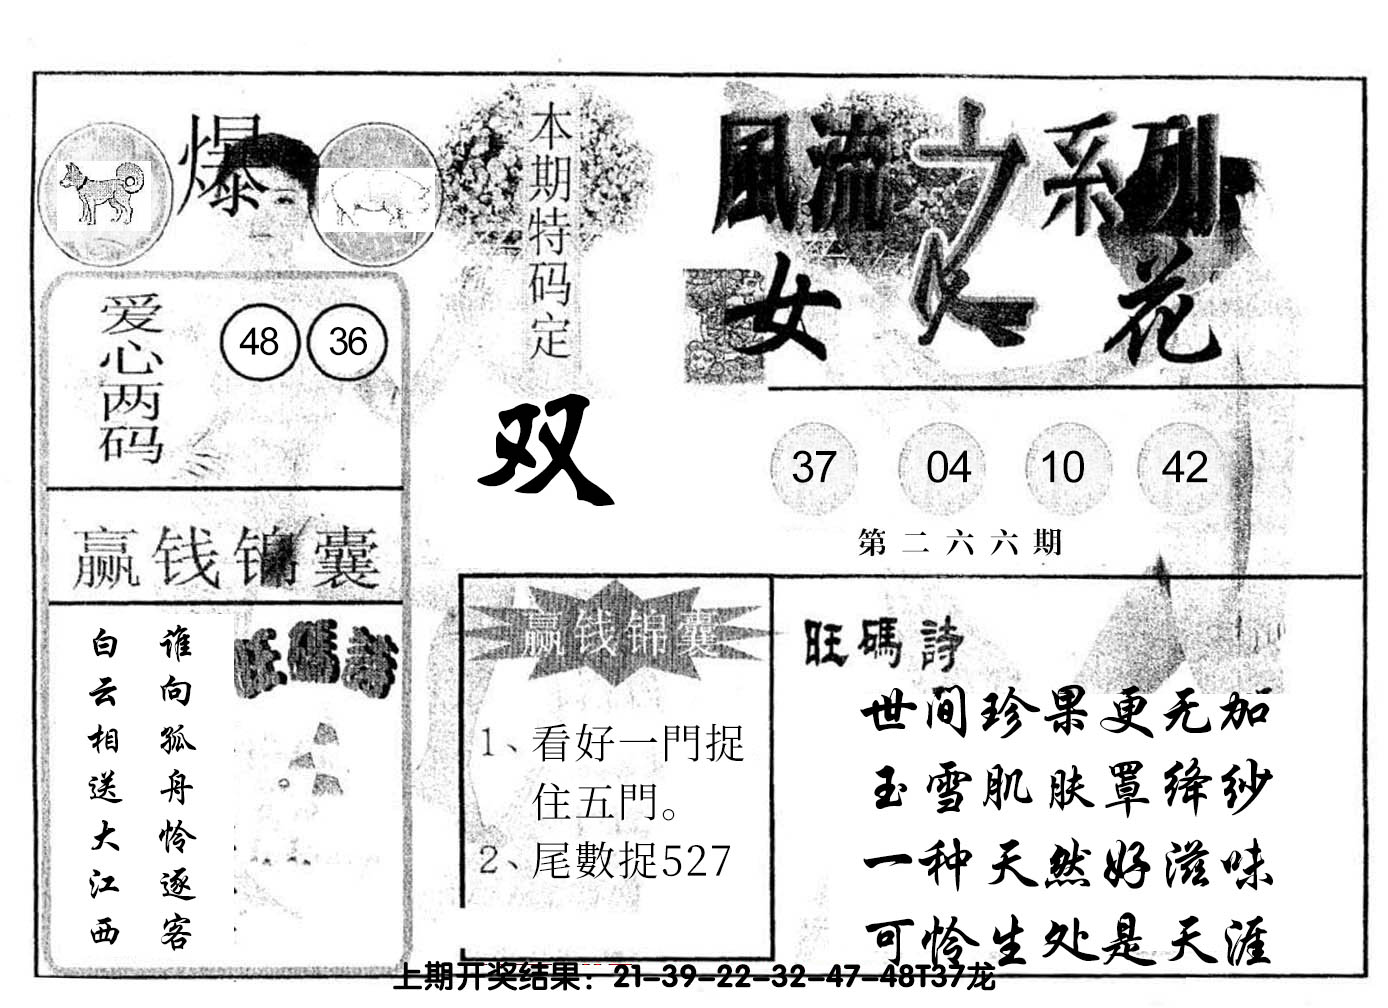 爆
本期特码定
双
風流之系列
女人花
爱心两码
48 36
37 04 10 42
第二六六期
赢钱锦囊
谁向孤舟怜逐客
白云相送大江西
旺碼詩
赢钱锦囊
1、看好一門捉
住五門。
2、尾數捉527
旺碼詩
世间珍果更无加
玉雪肌肤罩绛纱
一种天然好滋味
可怜生处是天涯
上期开奖结果：21-39-22-32-47-48T37龙